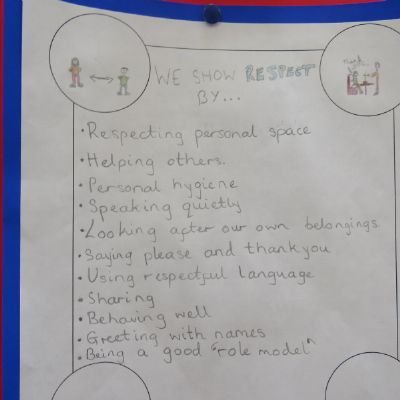 WE SHOW RESPECT
BY...
• Respecting personal space
• Helping others.
• Personal hygiene
• Speaking quietly
• Looking after our own belongings
• Saying please and thankyou
• Using respectful language
• Sharing
• Behaving well
• Greeting with names
• Being a good "role model"